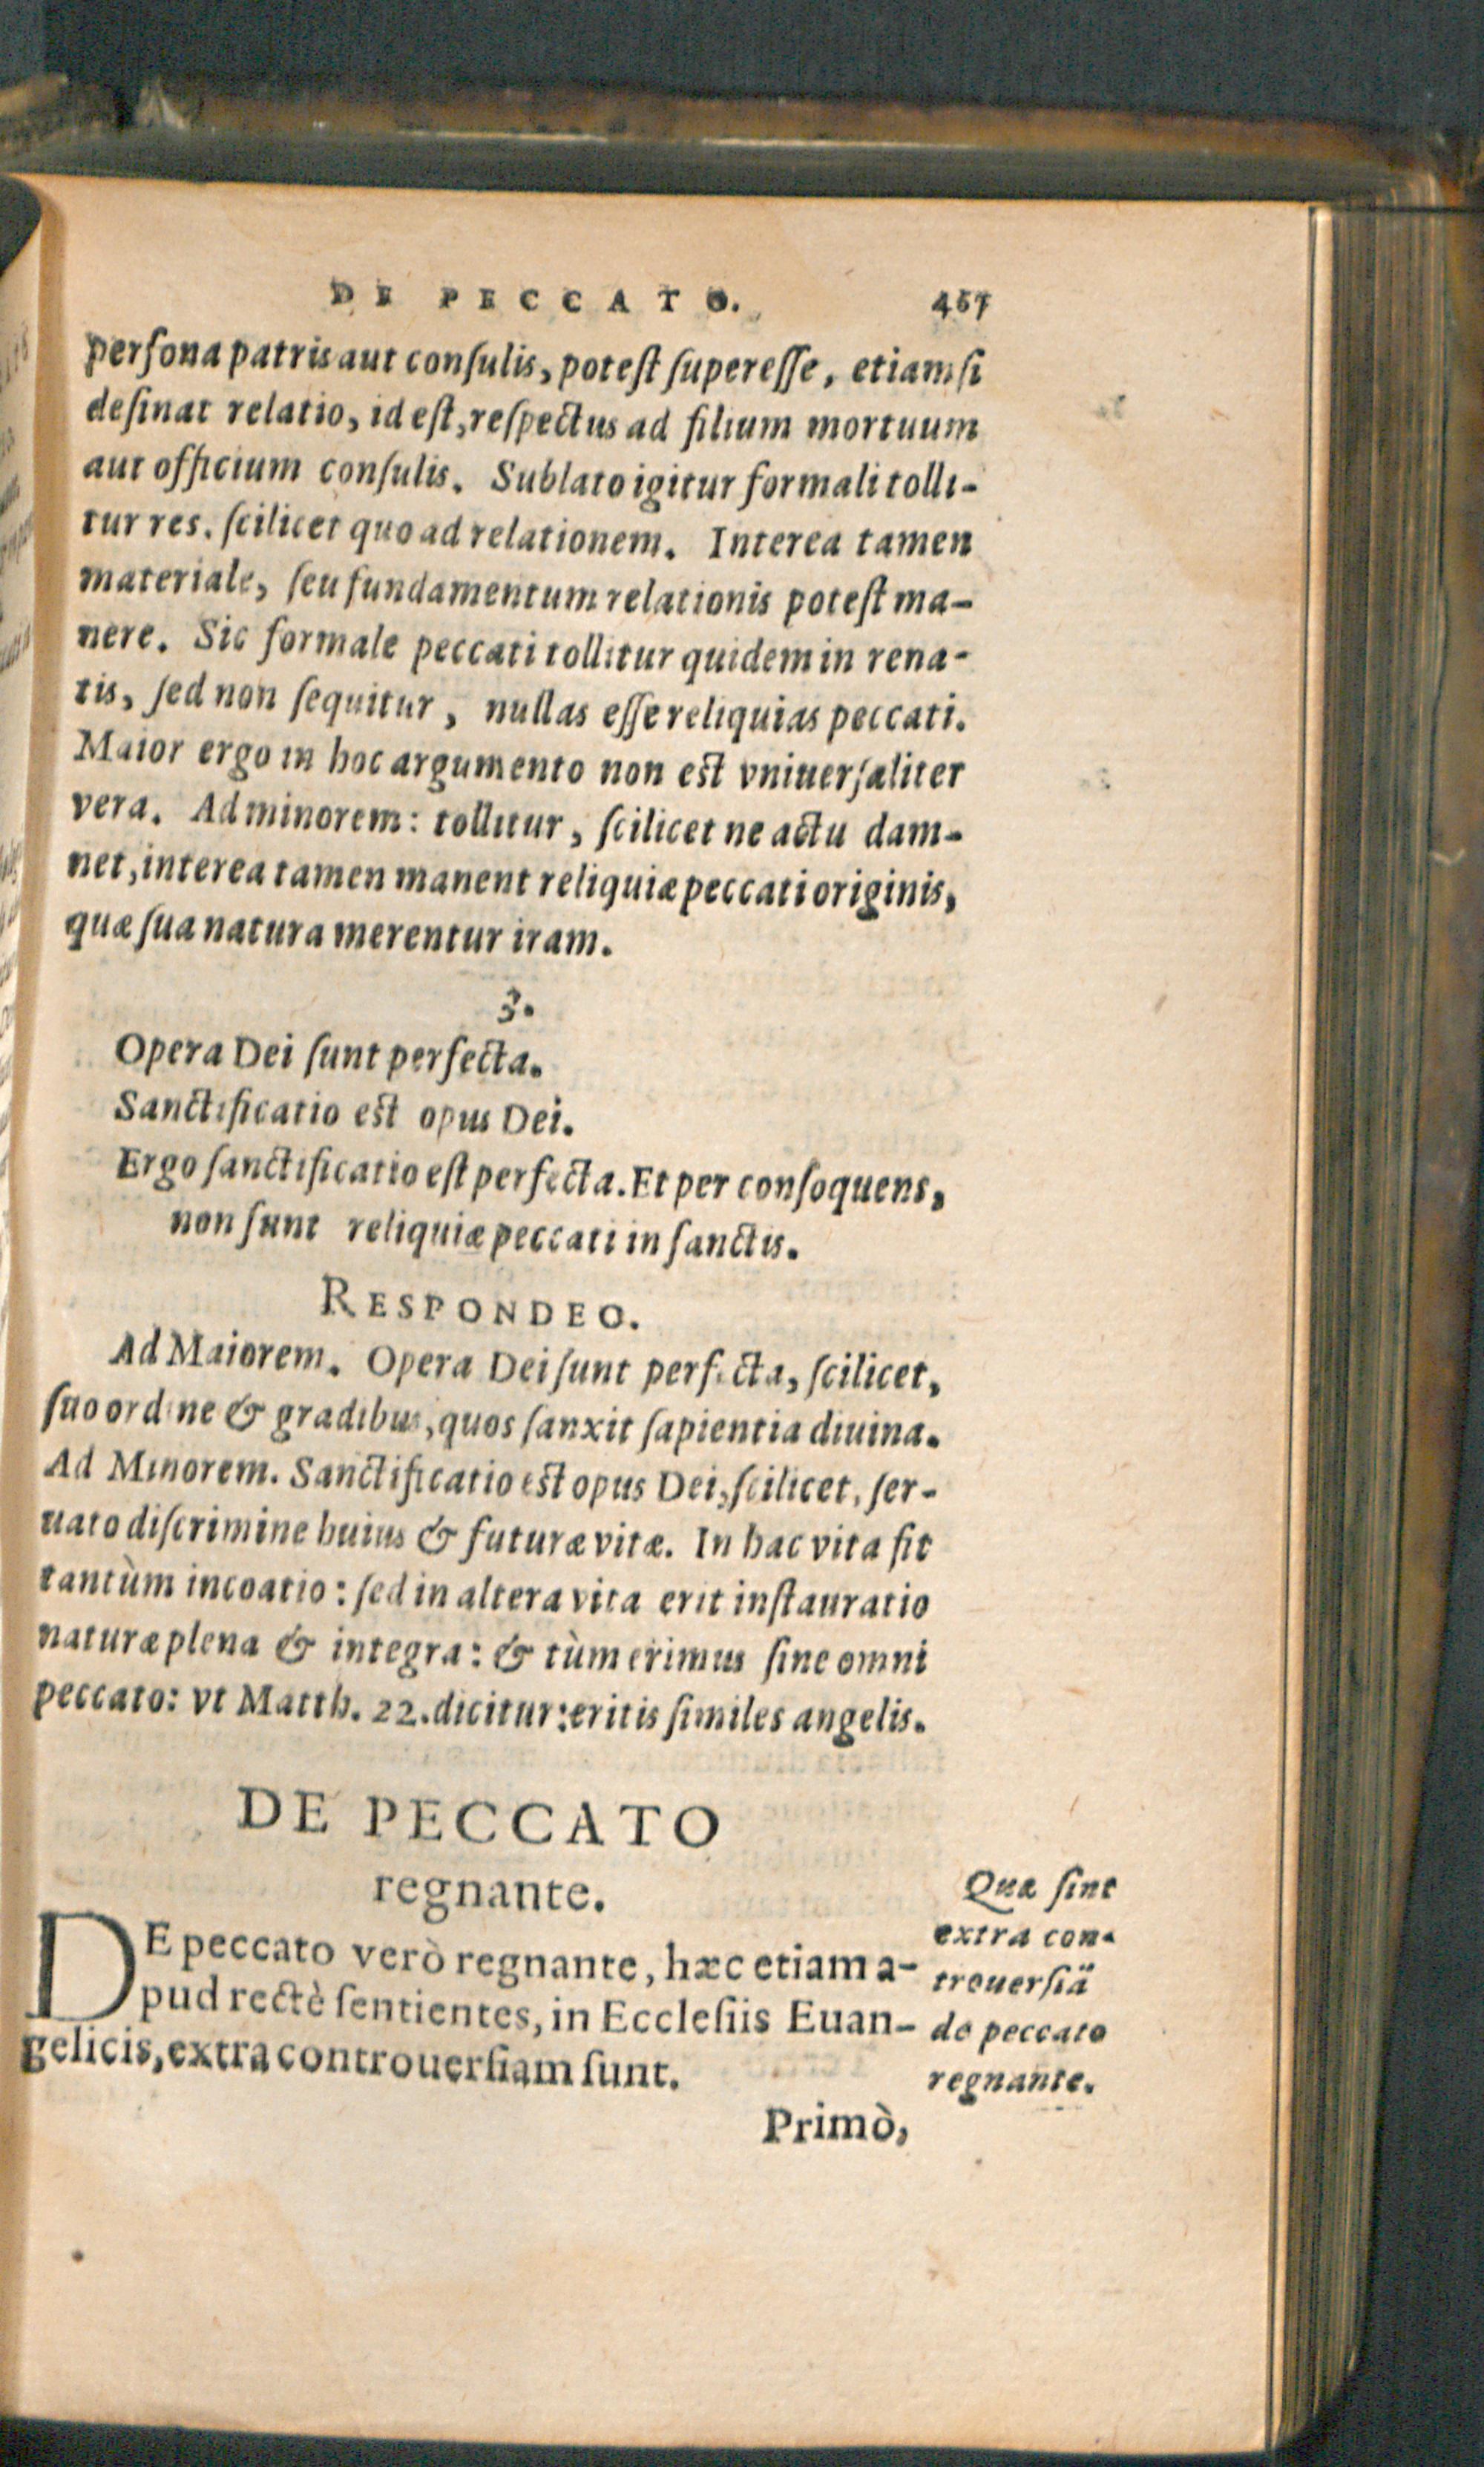 DE PECCATO.
persona patris aut consulis, potest superesse, etiamsi
desinat relatio, id est, respectus ad filium mortuum
aut officium consulis. Sublato igitur formali tolli-
tur res. scilicet quo ad relationem. Interea tamen
materiale, seu fundamentum relationis potest ma-
nere. Sic formale peccati tollitur quidem in rena-
tis, sed non sequitur, nullas esse reliquias peccati.
Maior ergo in hoc argumento non est vniuersaliter
vera. Ad minorem: tollitur, scilicet ne actu dam-
net, interea tamen manent reliquiæ peccati originis,
quæ sua natura merentur iram.
3.
Opera Dei sunt perfecta.
Sanctificatio est opus Dei.
Ergo sanctificatio est perfecta. Et per consoquens,
non sunt reliquiæ peccati in sanctis.
RESPONDEO.
Ad Maiorem. Opera Dei sunt perfecta, scilicet,
suo ordine & gradibus, quos sanxit sapientia diuina.
Ad Minorem. Sanctificatio est opus Dei, scilicet, ser-
uato discrimine huius & futuræ vitæ. In hac vita fit
tantùm incoatio: sed in altera vita erit instauratio
naturæ plena & integra: & tùm erimus sine omni
peccato: vt Matth. 22. dicitur: eritis similes angelis.
DE PECCATO
regnante.
DE peccato verò regnante, hæc etiam a-
pud rectè sentientes, in Ecclesiis Euan-
gelicis, extra controuersiam sunt.
Primò,
Quæ sint
extra con-
trouersiã
de peccato
regnante.